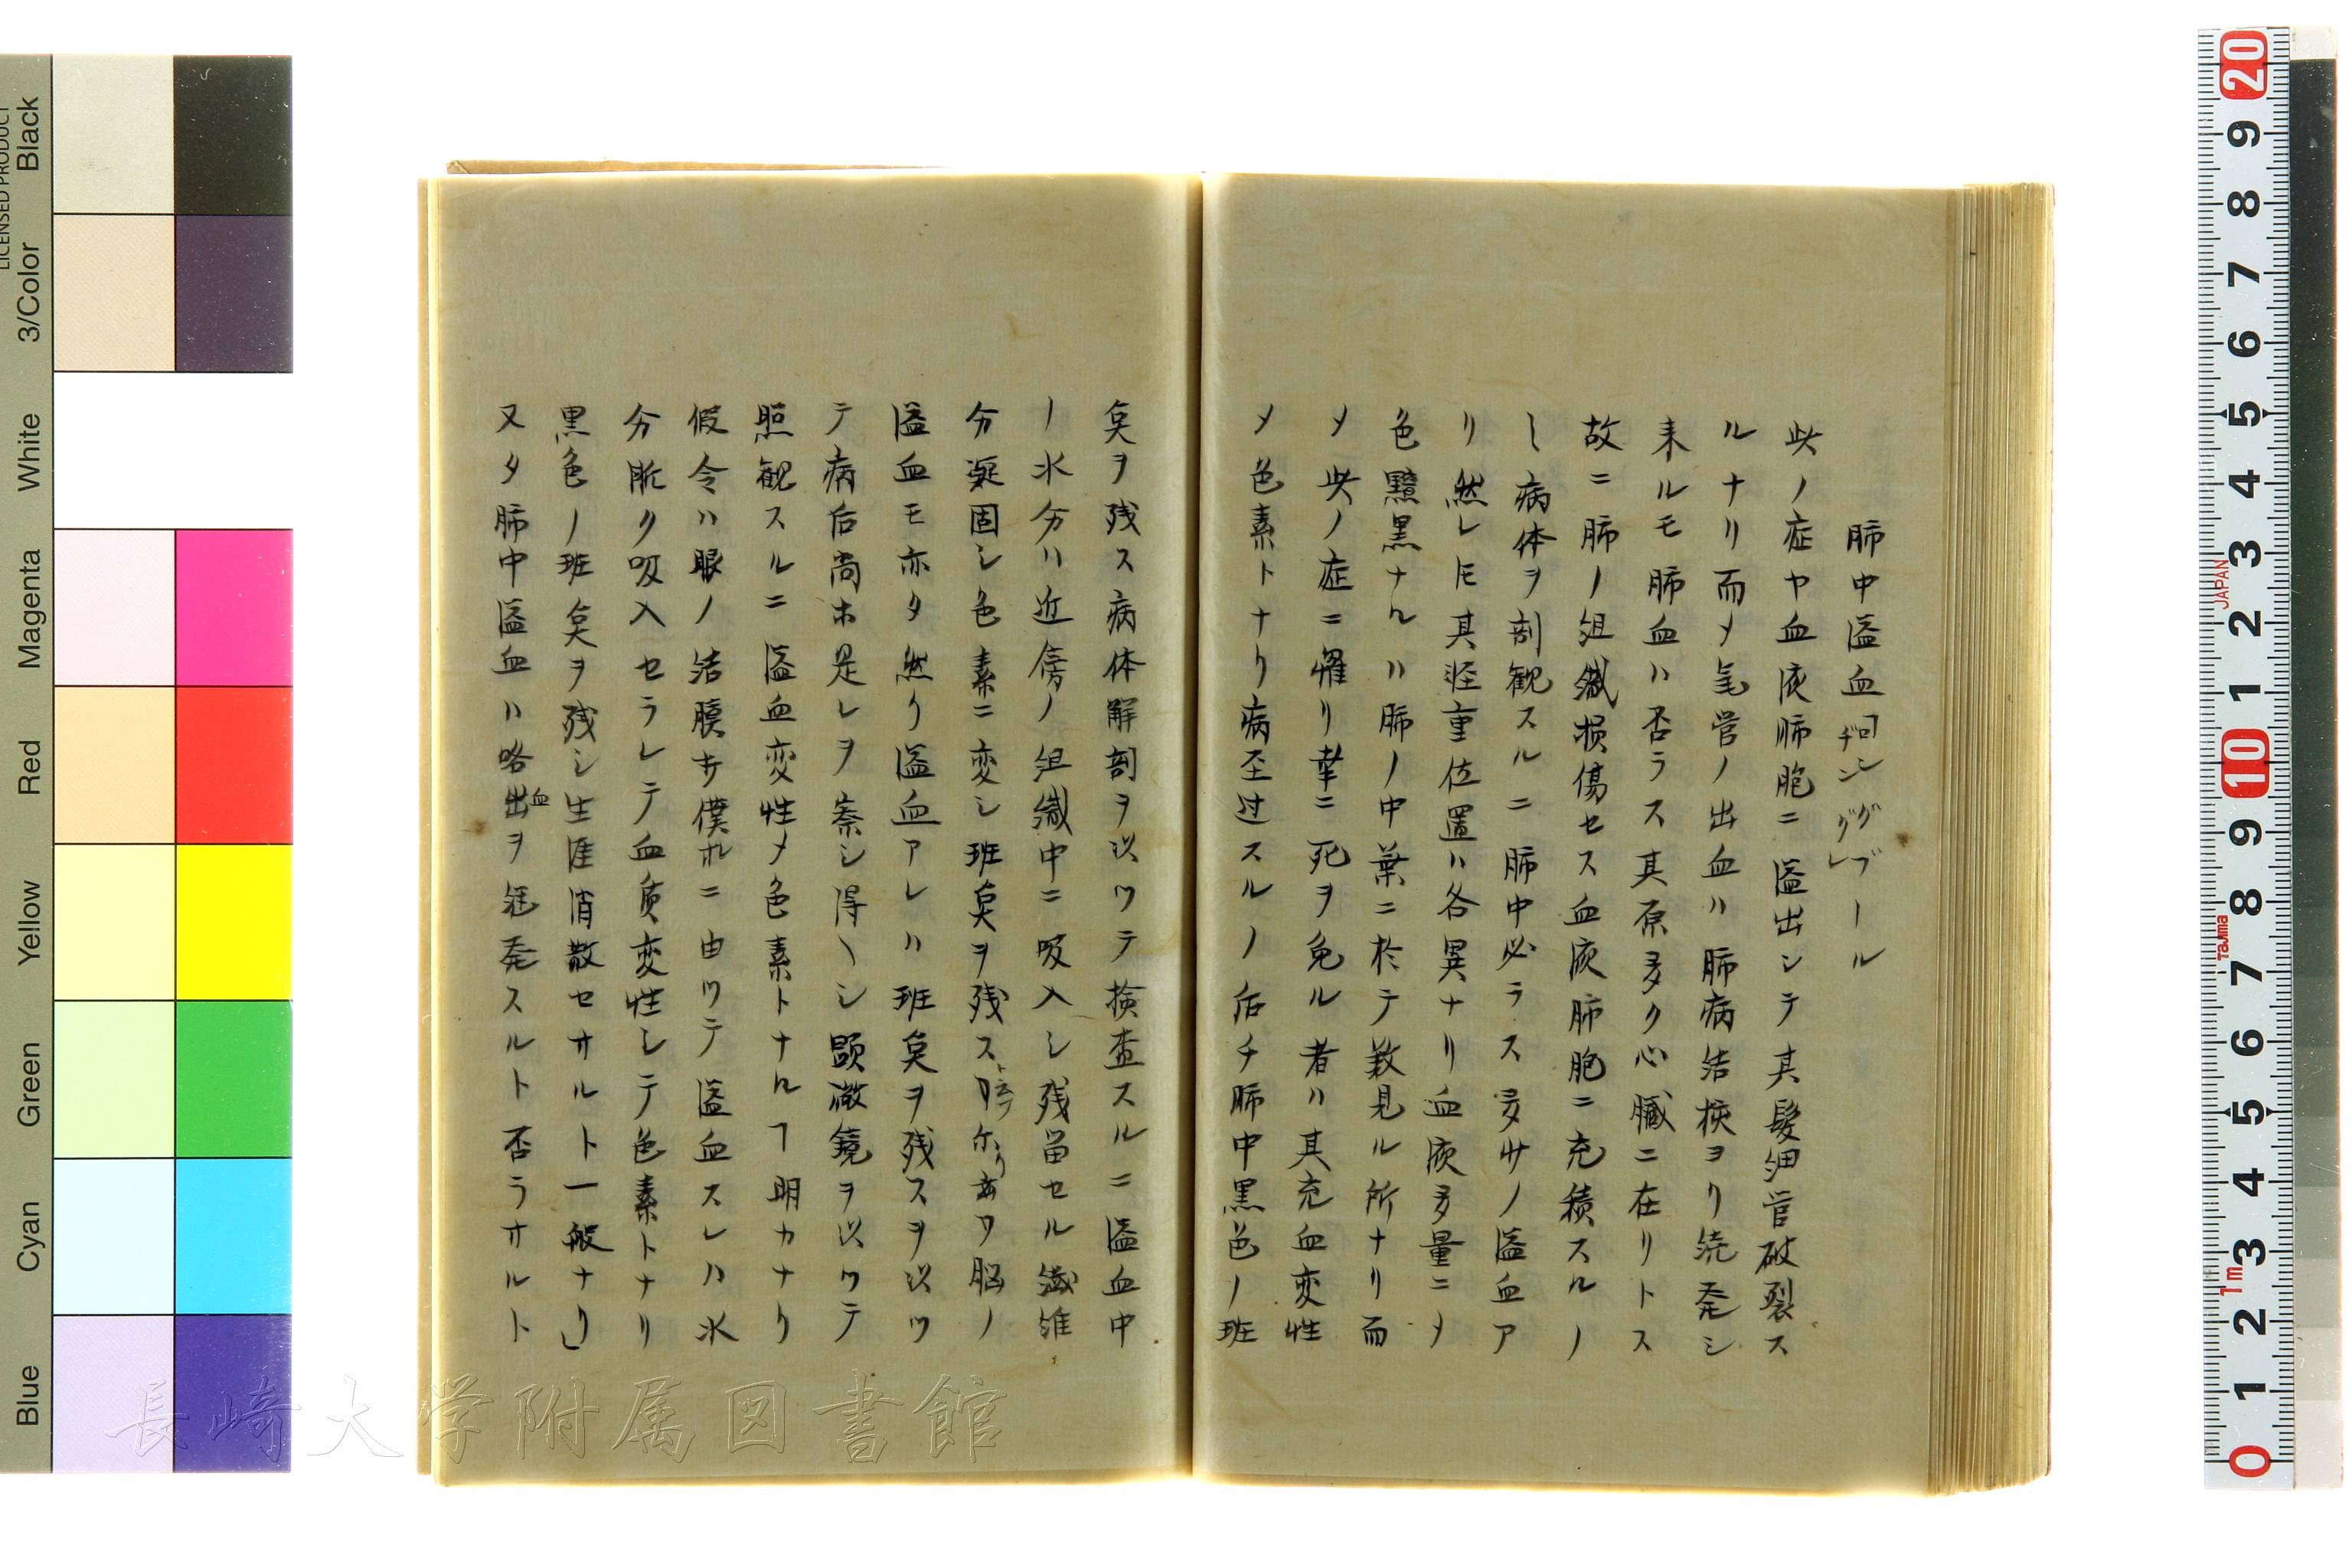 肺中溢血
此ノ症ヤ血液肺胞ニ溢出シテ其髪細管破裂ス
ルナリ而メ気管ノ出血ハ肺病結核ヨリ続発シ
来ルモ肺血ハ否ラス其原多ク心臓ニ在リトス
故ニ肺ノ組織損傷セス血液肺胞ニ充積スルノ
ミ病体ヲ剖観スルニ肺中必ラス多少ノ溢血ア
リ然レ𪜈其軽重位置ハ各異ナリ血液多量ニメ
色黯黒ナルハ肺ノ中葉ニ於テ数見ル所ナリ而
メ此ノ症ニ罹リ幸ニ死ヲ免ル者ハ其充血変性
メ色素トナリ病至过スルノ后チ肺中黒色ノ班
奌ヲ残ス病体解剖ヲ以ツテ検査スルニ溢血中
ノ水分ハ近傍ノ組織中ニ吸入シ残留セル繊維
分凝固シ色素ニ変シ班奌ヲ残ス 脳ノ
溢血モ亦タ然り溢血アレハ班奌ヲ残スヲ以ツ
テ病后尚ホ是レヲ索シ得ヘシ顕微鏡ヲ以ツテ
照観スルニ溢血変性メ色素トナルヿ明カナリ
假令ハ眼ノ結膜 僕 ニ由ツテ溢血スレハ水
分脈ク吸入セラレテ血質変性シテ色素トナリ
黒色ノ班奌ヲ残シ生涯消散セサルト一般ナリ」
又タ肺中溢血ハ咯出血ヲ 発スルト否ラサルト
Black
3/Color
White
Magenta
Red
Yellow
Green
Cyan
Blue
LICENSED PRODUCT
長崎大学附属図書館
20
9
8
7
6
5
4
3
2
1
10
9
8
7
6
5
4
3
2
1
0
JAPAN
Tajima
1m